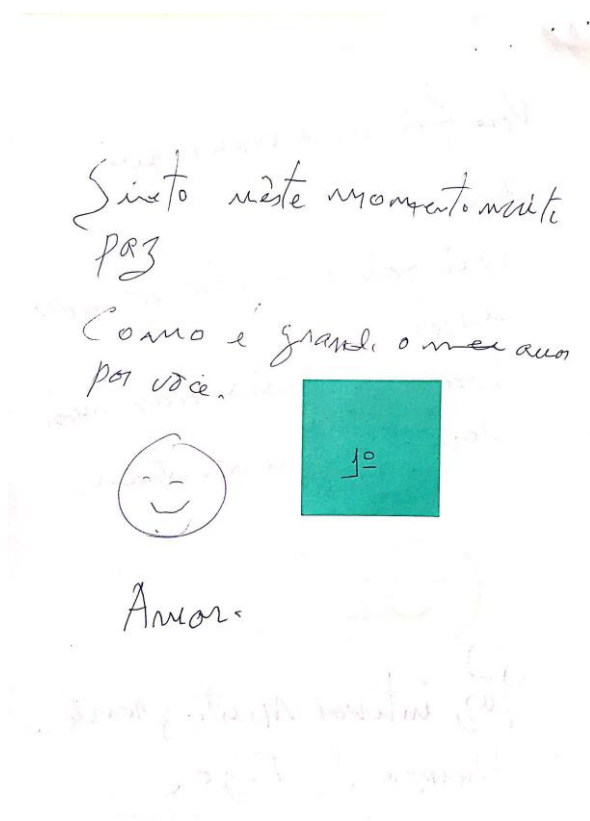 Sinto nêste momento muita
paz
Como é grande o meu amor
por você.
1º
Amor.